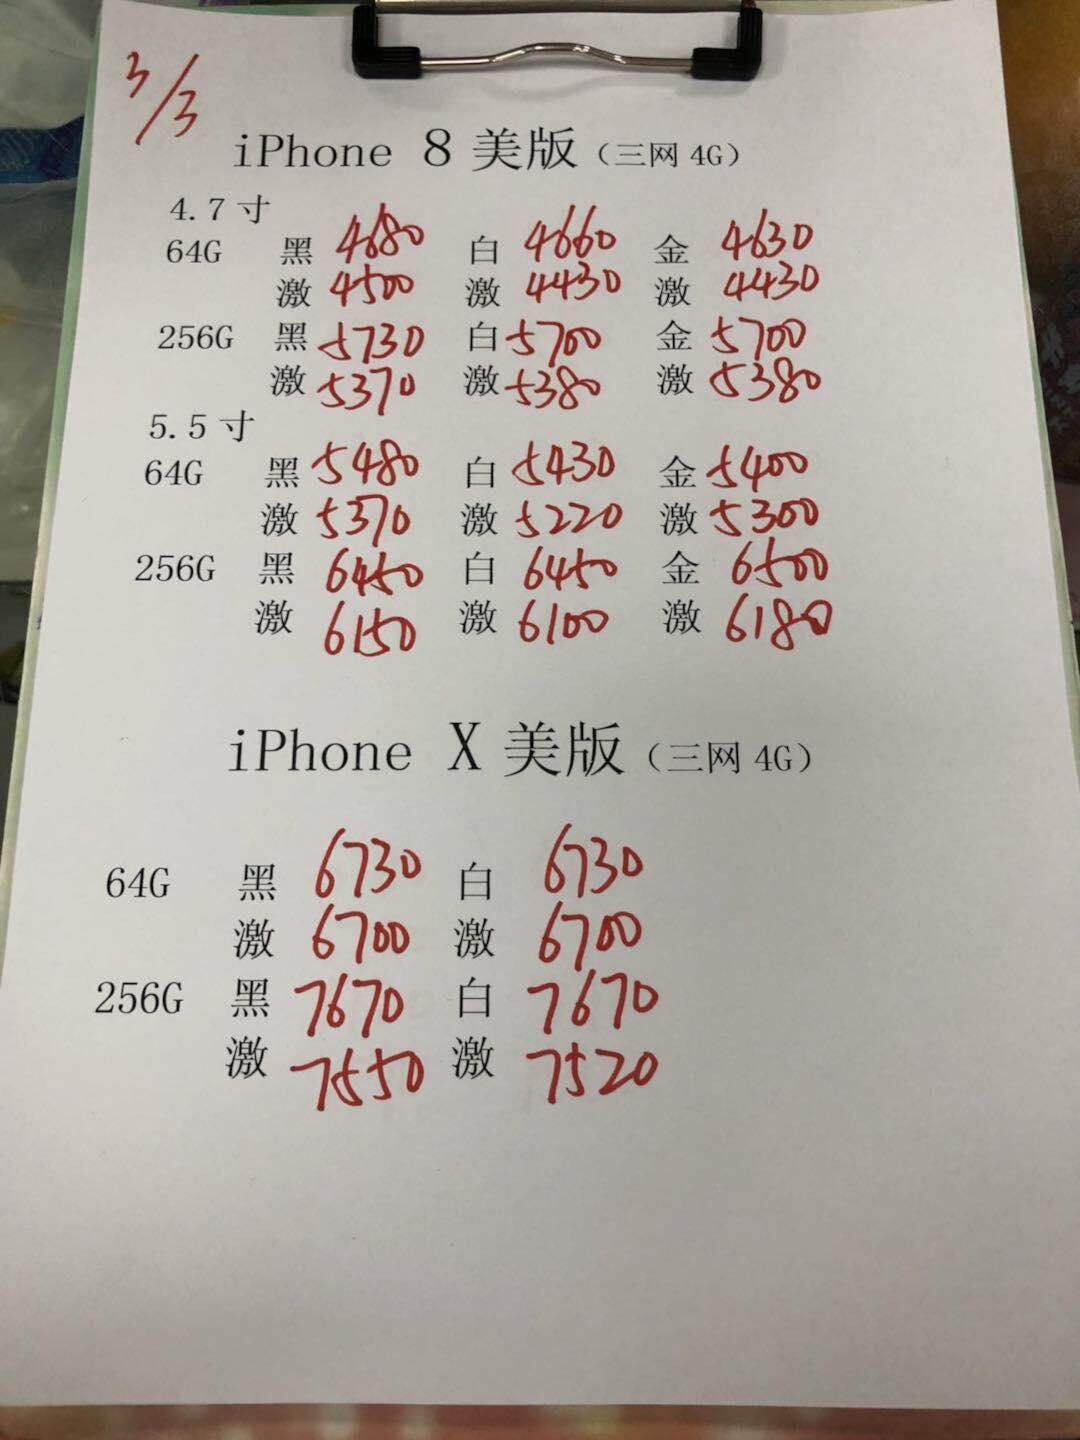 3/3
iPhone 8 美版（三网 4G）
4.7 寸
64G 黑 4680 白 4660 金 4630
激 4500 激 4430 激 4430
256G 黑 5730 白 5700 金 5700
激 5370 激 5380 激 5380
5.5 寸
64G 黑 5480 白 5430 金 5400
激 5370 激 5220 激 5300
256G 黑 6450 白 6450 金 6500
激 6150 激 6100 激 6180
iPhone X 美版（三网 4G）
64G 黑 6730 白 6730
激 6700 激 6700
256G 黑 7670 白 7670
激 7550 激 7520